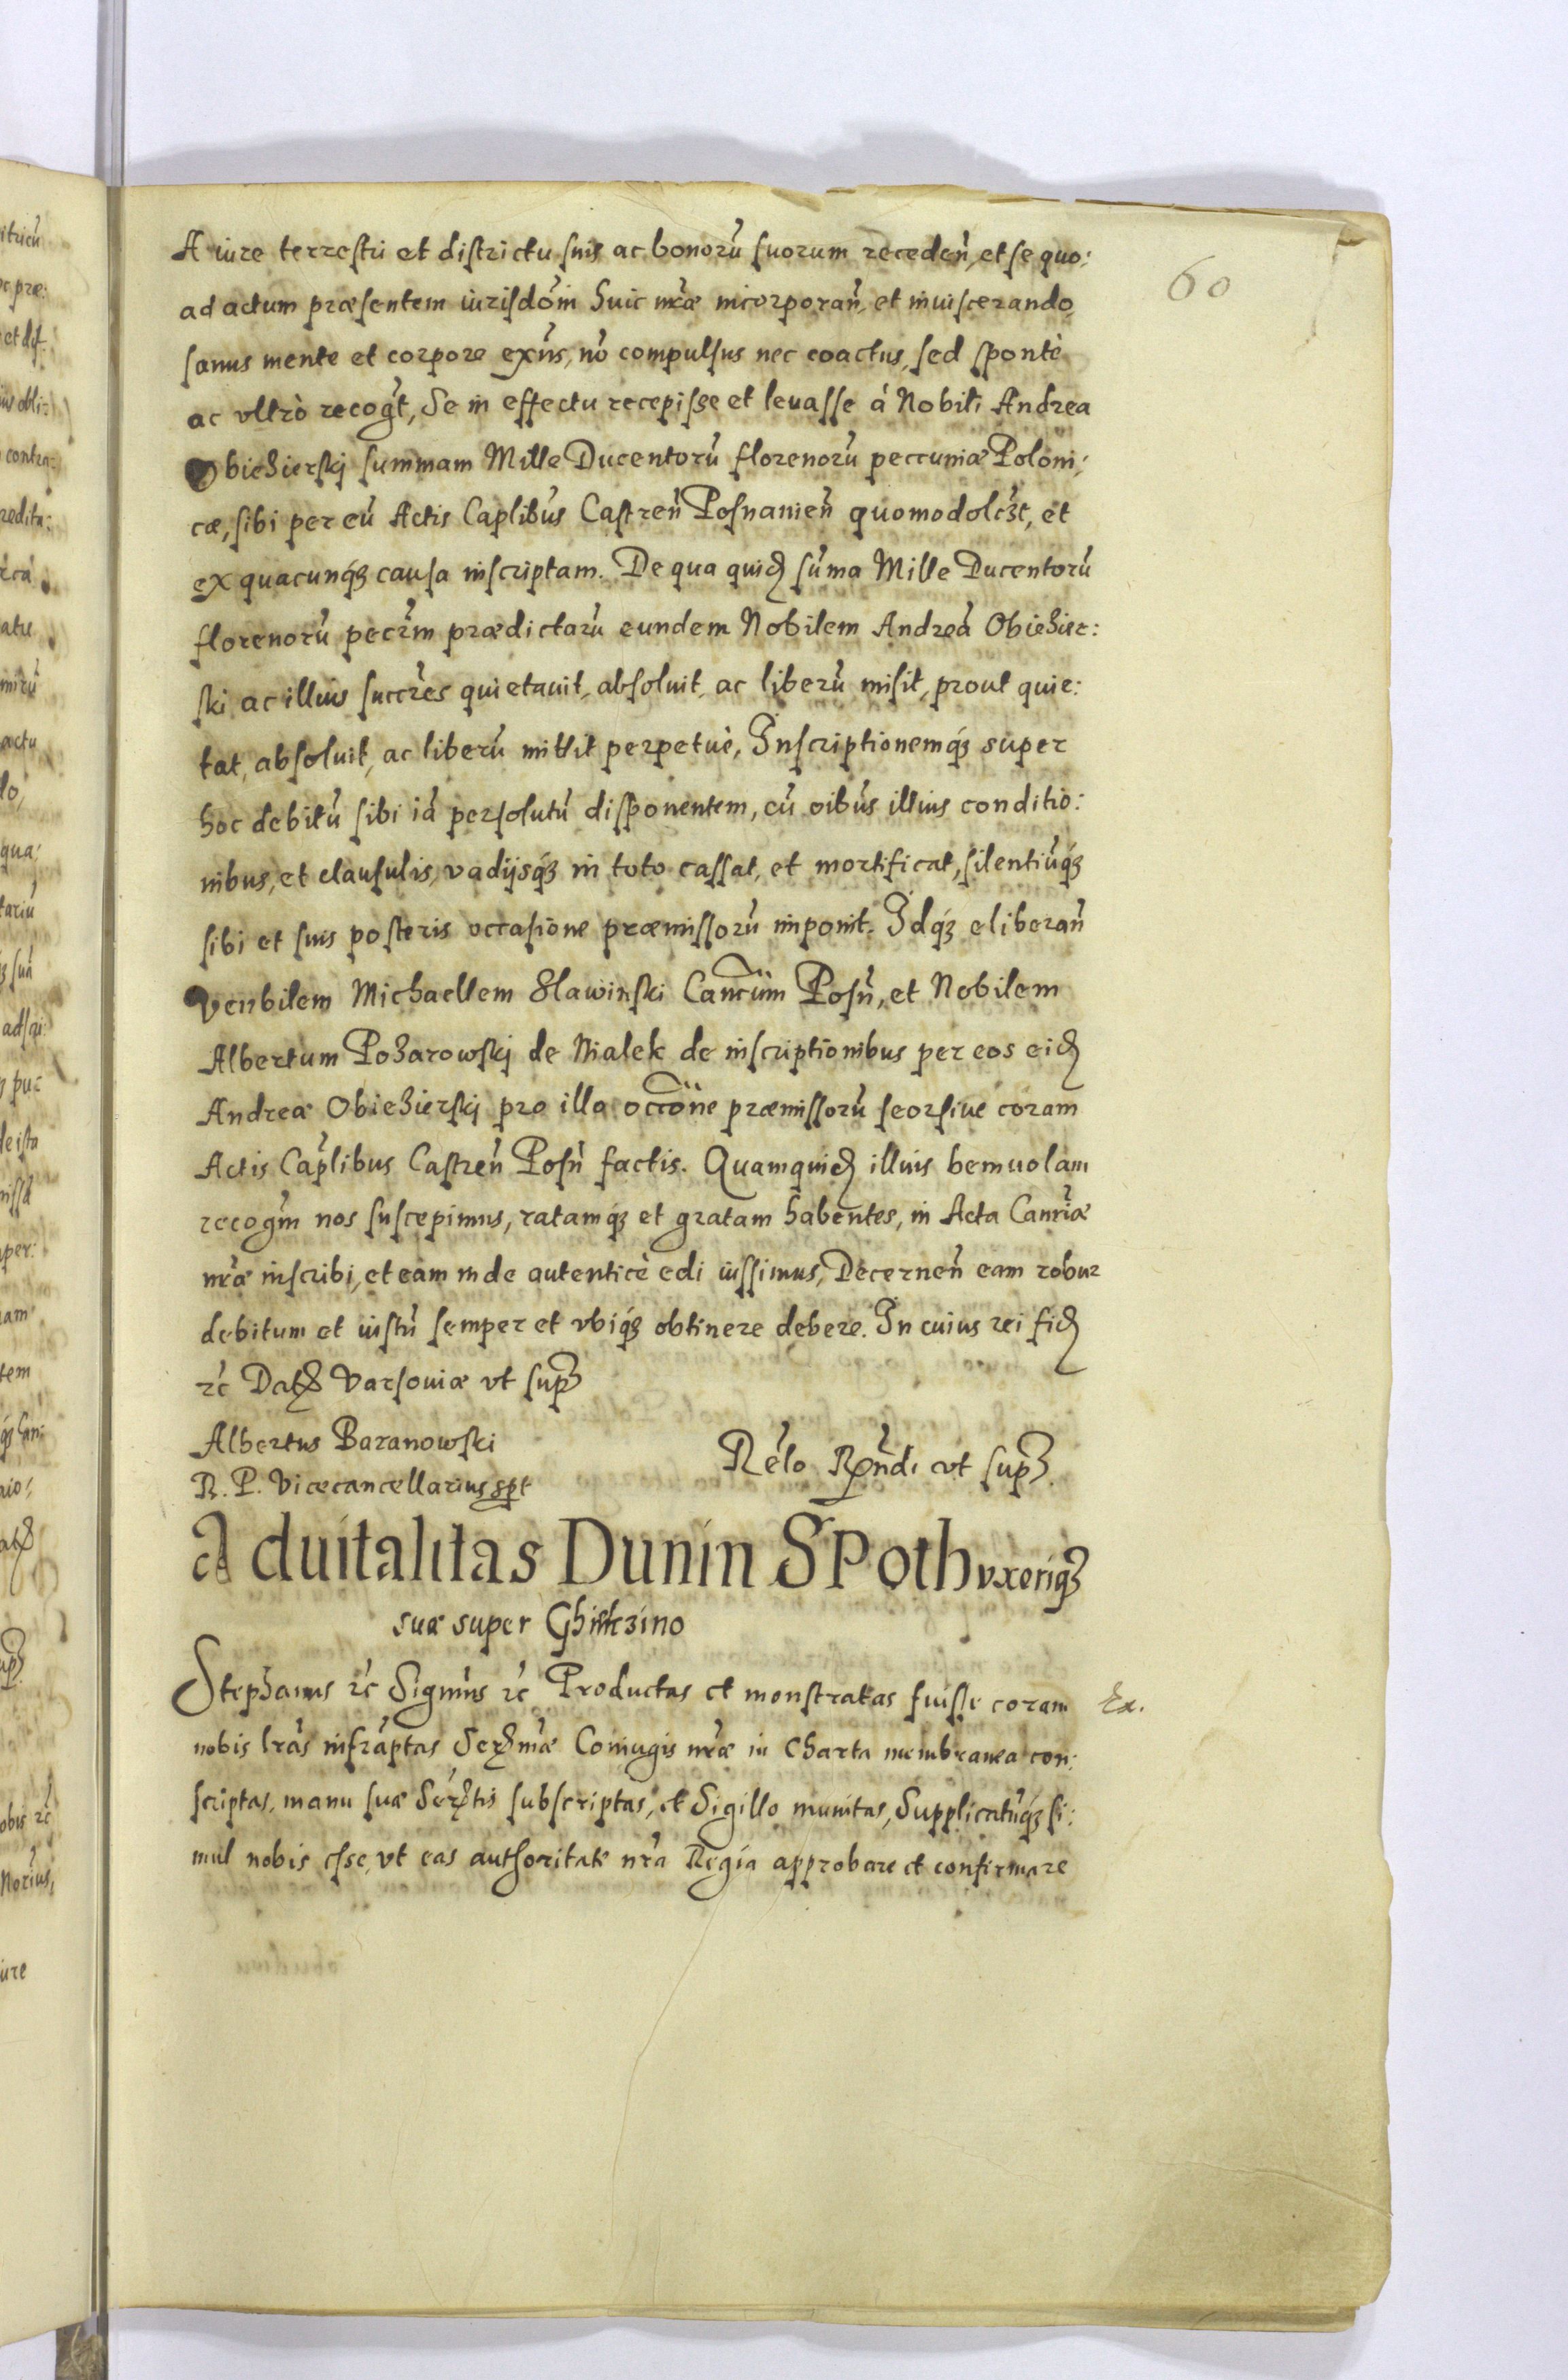 60
A iure terrestri et districtu suis ac bonorũ suorum receden̄, et se quo:
ad actum præsentem iurisdõm huic nr̃æ incorporan̄, et inuiscerando,
sanus mente et corpore exñs, nõ compulsus nec coactus, sed spontè
ac vltrò recog̃t, Se in effectu recepisse et leuasse à Nobili Andrea
Obiezierskj summam Mille Ducentorũ florenorũ peccuniæ Poloni:
cæ, sibi per eũ Actis Cap̃libus Castren̄ Posnanien̄ quomodolc̃t, et
ex quacunq́ꝫ causa inscriptam. De qua quidꝫ sũma Mille Ducentorũ
florenorũ pecr̃m prædictarũ eundem Nobilem Andreã Obiezier:
ski ac illius succr̃es quietauit, absoluit, ac liberũ misit, prout quie:
tat, absoluit, ac liberũ mittit perpetuè, Inscriptionemq́ꝫ super
hoc debitũ sibi iã persolutũ disponentem, cũ oĩbus illius conditio:
nibus, et clausulis, vadijsq́ꝫ in toto cassat, et mortificat, silentiũq́ꝫ
sibi et suis posteris occasione præmissorũ imponit. Idq́ꝫ eliberan̄
venbilem Michaellem Slawinski Canc̃um Posñ, et Nobilem
Albertum Pozarowskj de Nialek de inscriptionibus per eos eidꝫ
Andreæ Obiezierskj pro illa occõne præmissorũ seorsiue coram
Actis Cap̃libus Castren̄ Posñ factis. Quamquidꝫ illius beniuolam
recog̃m nos suscepimus, ratamq́ꝫ et gratam habentes, in Acta Canr̃iæ
nr̃æ inscribi, et eam inde autenticè edi iussimus, Decernen̄ eam robur
debitum et iustũ semper et vbiq́ꝫ obtinere debere. In cuius rei fidꝫ
ꝛc̃ Datꝫ Varsouiæ vt supꝫ
Albertus Baranowski
R. P. Vicecancellarius spt
Rel̃o Rp̃ndi vt supꝫ.
Aduitalitas Dunin SPoth vxoriqꝫ
suæ super Ghinczino
Stephanus ꝛc̃ Signm̃s ꝛc̃ Productas et monstratas fuisse coram
Ex.
nobis lr̃as infrãptas Serꝫmæ Coniugis nr̃æ in Charta membranea con:
scriptas, manu suæ Serꝫtis subscriptas, et Sigillo munitas, Supplicatũq́ꝫ si:
mul nobis esse, vt eas authoritate nr̃a Regia approbare et confirmare